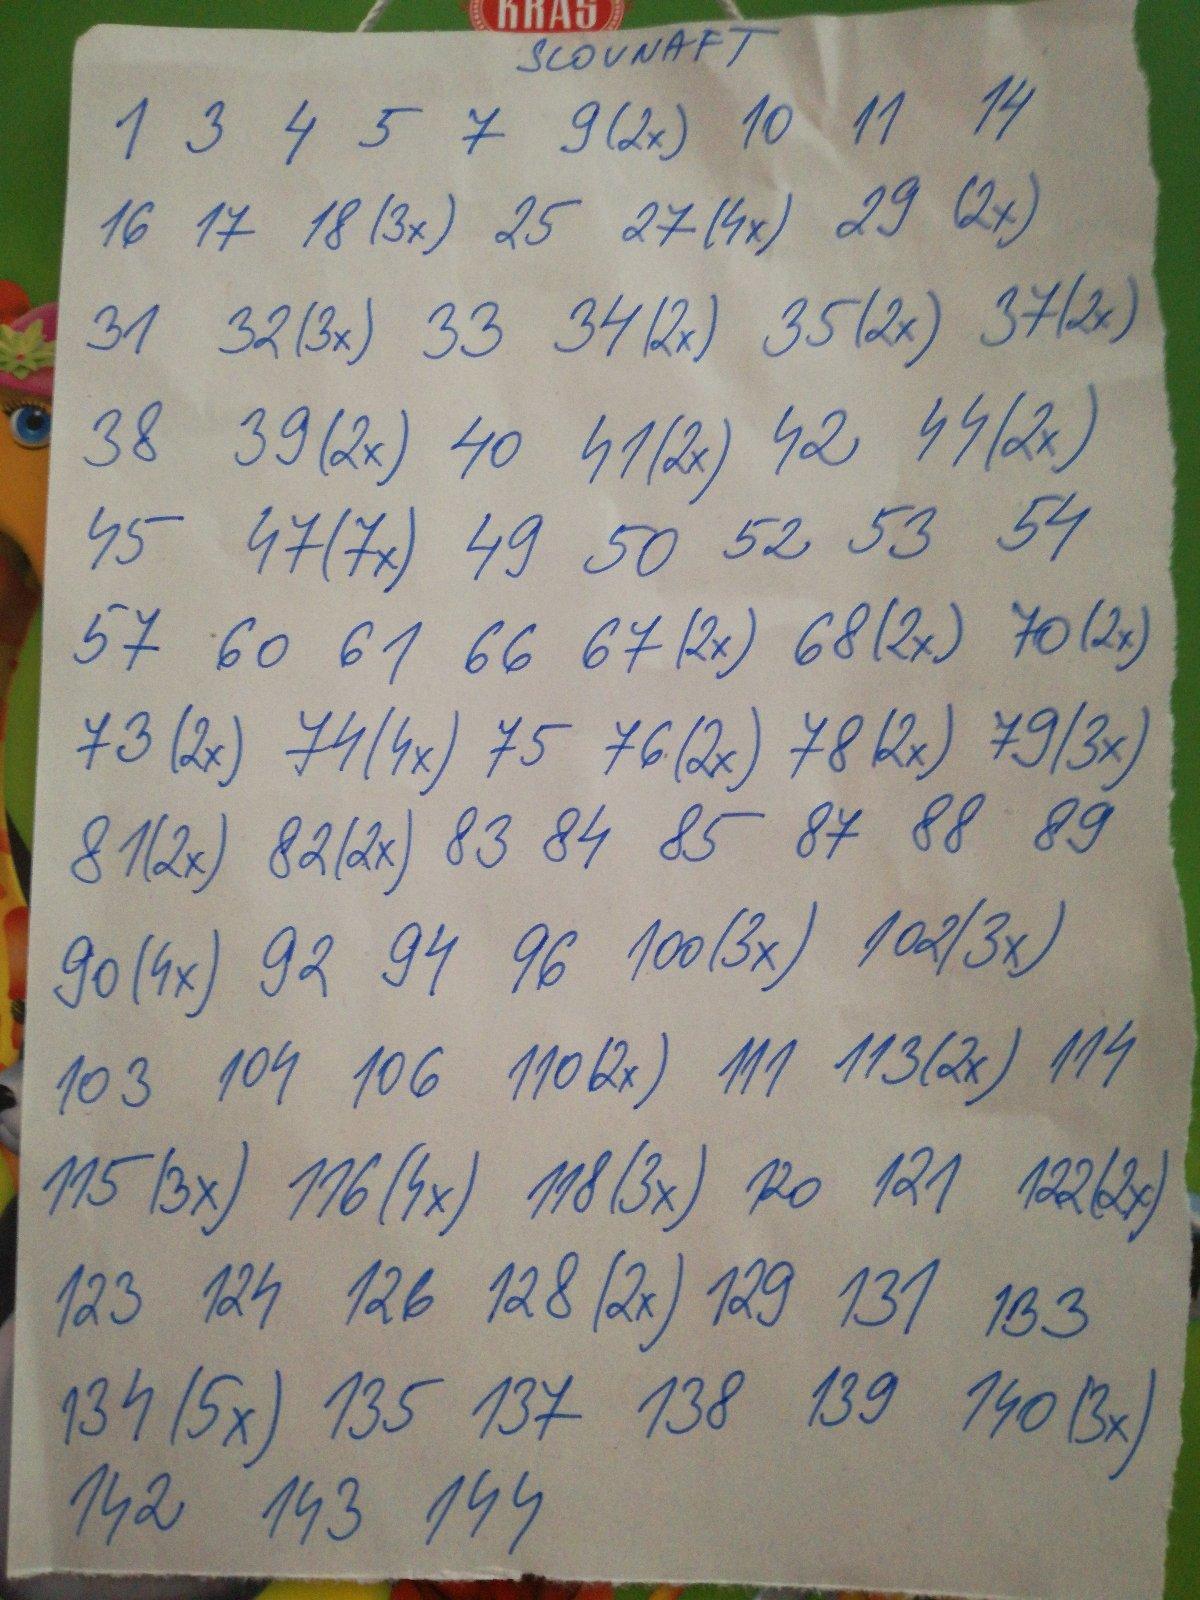 KRAŠ
SLOVNAFT
1 3 4 5 7 9(2x) 10 11 14
16 17 18(3x) 25 27(4x) 29 (2x)
31 32(3x) 33 34(2x) 35(2x) 37(2x)
38 39(2x) 40 41(2x) 42 44(2x)
45 47(7x) 49 50 52 53 54
57 60 61 66 67(2x) 68(2x) 70(2x)
73(2x) 74(4x) 75 76(2x) 78(2x) 79(3x)
81(2x) 82(2x) 83 84 85 87 88 89
90(4x) 92 94 96 100(3x) 102(3x)
103 104 106 110(2x) 111 113(2x) 114
115(3x) 116(4x) 118(3x) 120 121 122(2x)
123 124 126 128(2x) 129 131 133
134(5x) 135 137 138 139 140(3x)
142 143 144